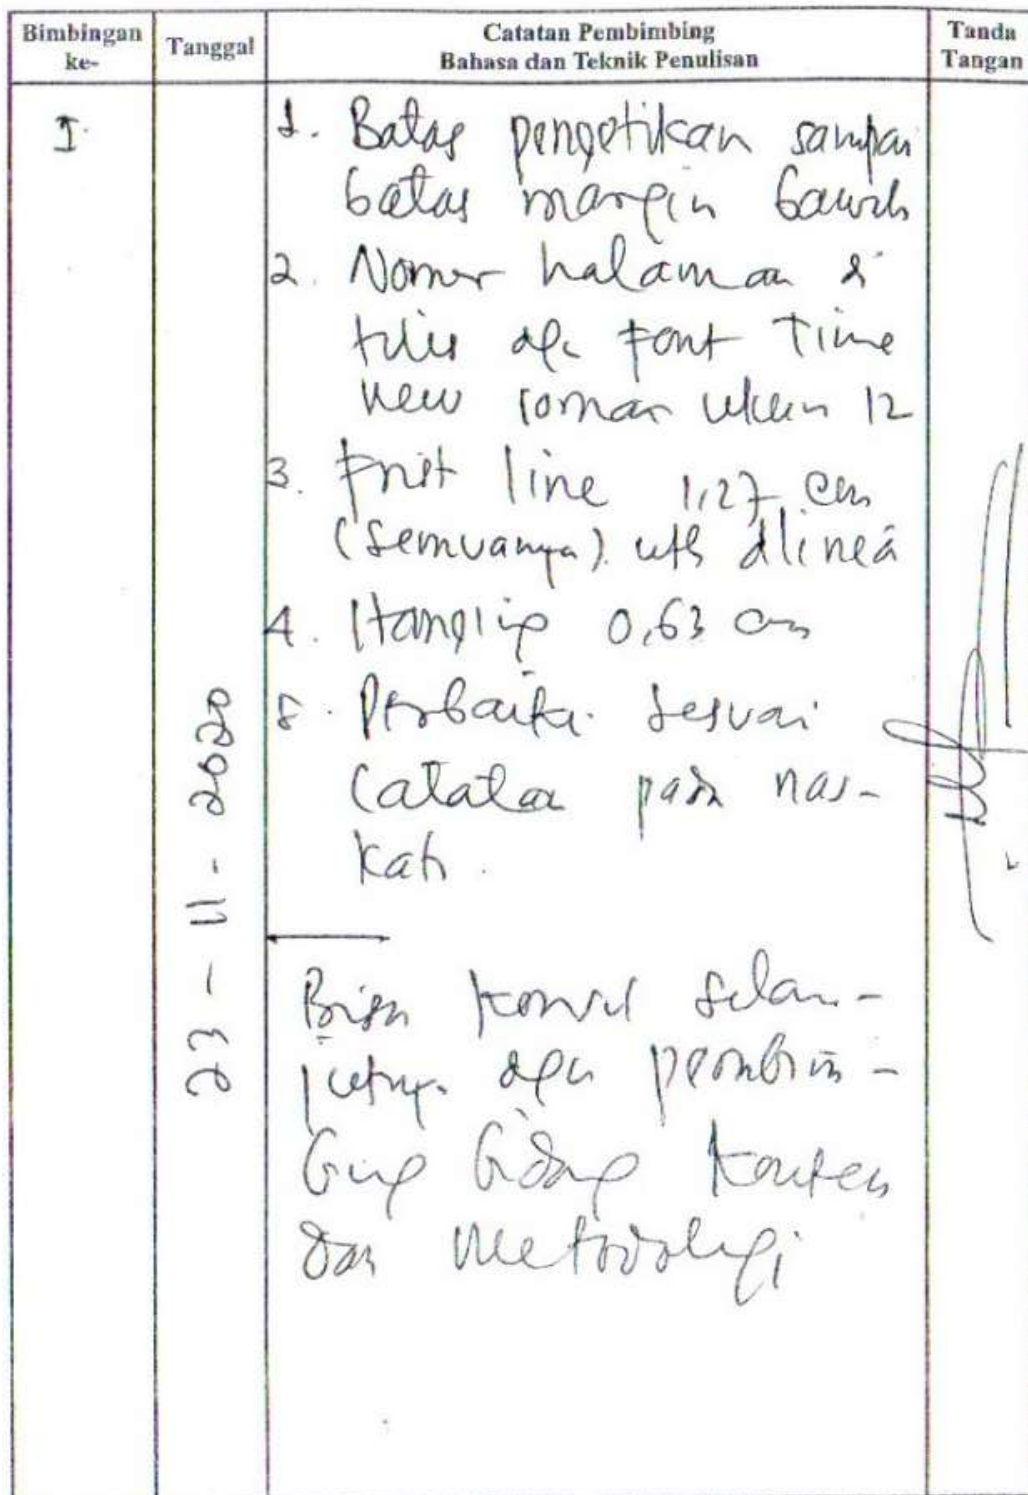 Bimbingan ke-
Tanggal
Catatan Pembimbing
Bahasa dan Teknik Penulisan
Tanda Tangan
I
23 - 11 - 2020
1. Batas pengetikan sampai
batas margin bawah
2. Nomer halaman di
tulis dgn Font Time
new roman ukuran 12
3. First line 1,27 cm
(semuanya) utk alinea
4. Hanging 0,63 cm
5. Perbaiki sesuai
catatan pada nas-
kah.
Bisa konsul selan-
jutnya dgn pembim-
bing bidang Konten
dan Metodologi